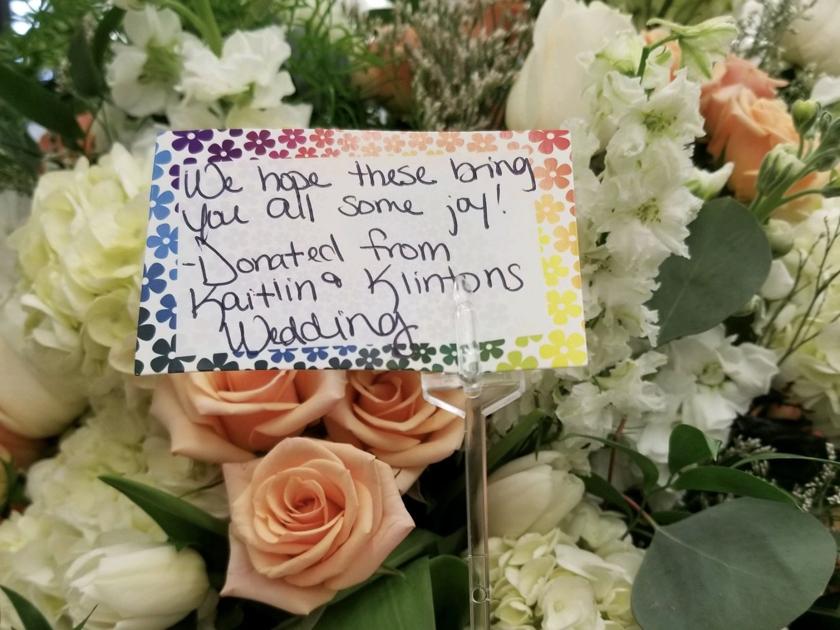 We hope these bring
you all some joy!
-Donated from
Kaitlin & Klintons
Wedding